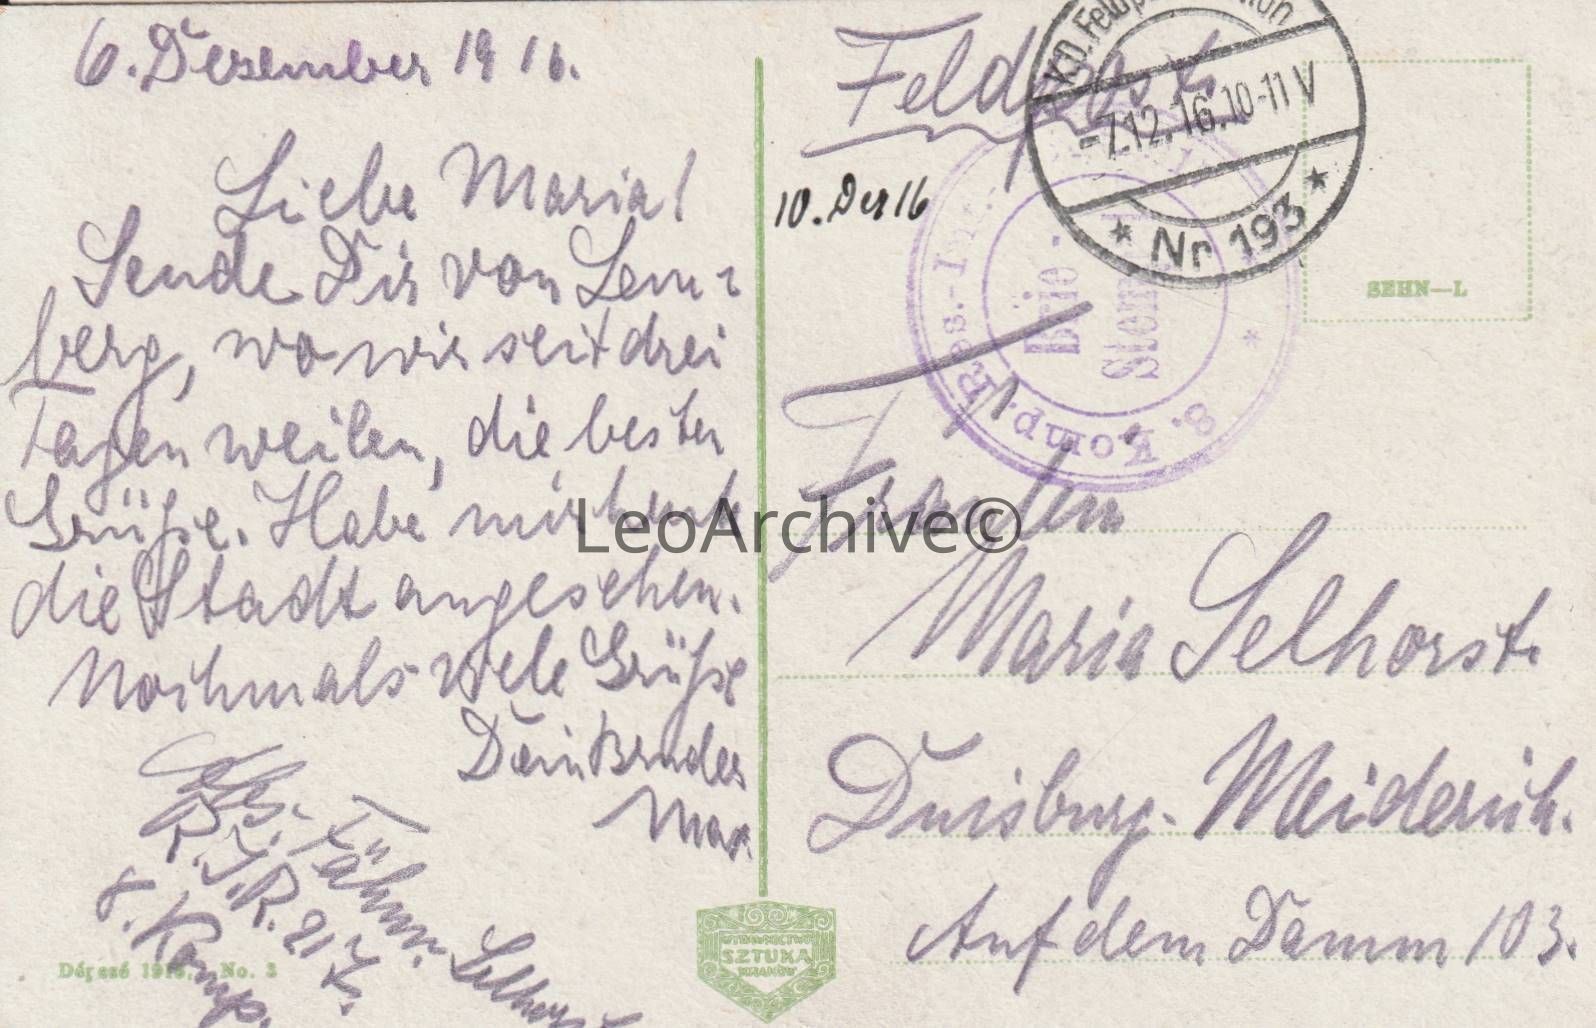 6. Dezember 1916.
Liebe Maria!
Sende Dir von Lem-
berg, wo wir seit drei
Tagen weilen, die besten
Grüße. Habe mir heute
die Stadt angesehen.
Nochmals viele Grüße
Dein Bruder
Max.
Fähnr. Selhorst
R.I.R. 217.
8. Komp.
Feldpost
10. Dez 16
K.D. Feldp
-7.12.16.10-11 V
* Nr 193 *
8. Komp. Res.-Inf.
Brie
Stem
SEHN—L
Fräulein
Maria Selhorst.
Duisburg-Meiderich.
Auf dem Damm 103.
SZTUKA
KRAKÓW
No. 3
LeoArchive©